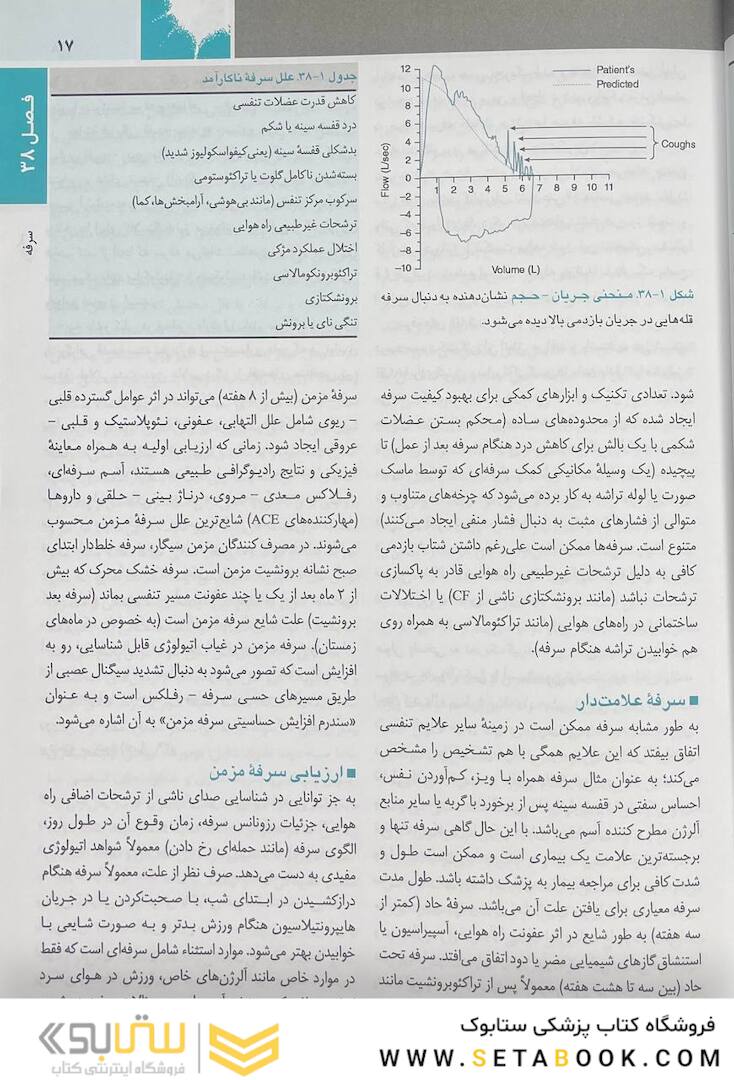 ۱۷
فصل ۳۸
سرفه
Patient's
Predicted
Coughs
Flow (L/sec)
12
10
8
6
4
2
0
−2
−4
−6
−8
−10
1 2 3 4 5 6 7 8 9 10 11
Volume (L)
شکل ۱-۳۸. منحنی جریان - حجم نشان‌دهنده به دنبال سرفه
قله‌هایی در جریان بازدمی بالا دیده می‌شود.
شود. تعدادی تکنیک و ابزارهای کمکی برای بهبود کیفیت سرفه
ایجاد شده که از محدوده‌های ساده (محکم بستن عضلات
شکمی با یک بالش برای کاهش درد هنگام سرفه بعد از عمل) تا
پیچیده (یک وسیلهٔ مکانیکی کمک سرفه‌ای که توسط ماسک
صورت یا لوله تراشه به کار برده می‌شود که چرخه‌های متناوب و
متوالی از فشارهای مثبت به دنبال فشار منفی ایجاد می‌کنند)
متنوع است. سرفه‌ها ممکن است علی‌رغم داشتن شتاب بازدمی
کافی به دلیل ترشحات غیرطبیعی راه هوایی قادر به پاکسازی
ترشحات نباشد (مانند برونشکتازی ناشی از CF) یا اختلالات
ساختمانی در راه‌های هوایی (مانند تراکئومالاسی به همراه روی
هم خوابیدن تراشه هنگام سرفه).
■ سرفهٔ علامت‌دار
به طور مشابه سرفه ممکن است در زمینهٔ سایر علایم تنفسی
اتفاق بیفتد که این علایم همگی با هم تشخیص را مشخص
می‌کند؛ به عنوان مثال سرفه همراه با ویز، کم‌آوردن نفس،
احساس سفتی در قفسه سینه پس از برخورد با گربه یا سایر منابع
آلرژن مطرح کننده آسم می‌باشد. با این حال گاهی سرفه تنها و
برجسته‌ترین علامت یک بیماری است و ممکن است طول و
شدت کافی برای مراجعه بیمار به پزشک داشته باشد. طول مدت
سرفه معیاری برای یافتن علت آن می‌باشد. سرفهٔ حاد (کمتر از
سه هفته) به طور شایع در اثر عفونت راه هوایی، آسپیراسیون یا
استنشاق گازهای شیمیایی مضر یا دود اتفاق می‌افتد. سرفه تحت
حاد (بین سه تا هشت هفته) معمولاً پس از تراکئوبرونشیت مانند
جدول ۱-۳۸. علل سرفهٔ ناکارآمد
کاهش قدرت عضلات تنفسی
درد قفسه سینه یا شکم
بدشکلی قفسهٔ سینه (یعنی کیفواسکولیوز شدید)
بسته‌شدن ناکامل گلوت یا تراکئوستومی
سرکوب مرکز تنفس (مانند بی‌هوشی، آرامبخش‌ها، کما)
ترشحات غیرطبیعی راه هوایی
اختلال عملکرد مژکی
تراکئوبرونکومالاسی
برونشکتازی
تنگی نای یا برونش
سرفهٔ مزمن (بیش از ۸ هفته) می‌تواند در اثر عوامل گسترده قلبی
- ریوی شامل علل التهابی، عفونی، نئوپلاستیک و قلبی -
عروقی ایجاد شود. زمانی که ارزیابی اولیه به همراه معاینهٔ
فیزیکی و نتایج رادیوگرافی طبیعی هستند، آسم سرفه‌ای،
رفلاکس معدی - مروی، درناژ بینی - حلقی و داروها
(مهارکننده‌های ACE) شایع‌ترین علل سرفهٔ مزمن محسوب
می‌شوند. در مصرف کنندگان مزمن سیگار، سرفه خلط‌دار ابتدای
صبح نشانه برونشیت مزمن است. سرفه خشک محرک که بیش
از ۲ ماه بعد از یک یا چند عفونت مسیر تنفسی بماند (سرفه بعد
برونشیت) علت شایع سرفه مزمن است (به خصوص در ماه‌های
زمستان). سرفه مزمن در غیاب اتیولوژی قابل شناسایی، رو به
افزایش است که تصور می‌شود به دنبال تشدید سیگنال عصبی از
طریق مسیرهای حسی سرفه - رفلکس است و به عنوان
«سندرم افزایش حساسیتی سرفه مزمن» به آن اشاره می‌شود.
■ ارزیابی سرفهٔ مزمن
به جز توانایی در شناسایی صدای ناشی از ترشحات اضافی راه
هوایی، جزئیات رزونانس سرفه، زمان وقوع آن در طول روز،
الگوی سرفه (مانند حمله‌ای رخ دادن) معمولاً شواهد اتیولوژی
مفیدی به دست می‌دهد. صرف نظر از علت، معمولاً سرفه هنگام
درازکشیدن در ابتدای شب، با صحبت‌کردن یا در جریان
هایپرونتیلاسیون هنگام ورزش بدتر و به صورت شایعی با
خوابیدن بهتر می‌شود. موارد استثناء شامل سرفه‌ای است که فقط
در موارد خاص مانند آلرژن‌های خاص، ورزش در هوای سرد
فروشگاه کتاب پزشکی ستابوک
WWW.SETABOOK.COM
ستابوک
فروشگاه اینترنتی کتاب